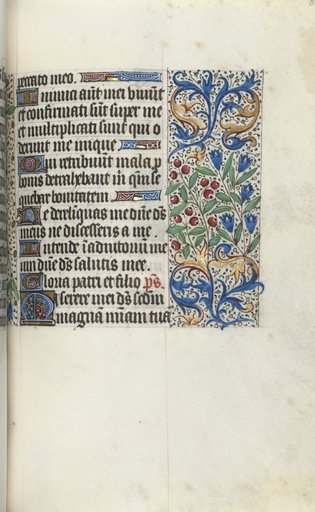 peccato meo.
Inimici aut mei vivut
et confirmati sut super me
et multiplicati sunt qui o
derunt me inique.
Qui retribuut mala p
bonis detrahebant m qm se
quebar bonitatem.
Ne derelinquas me dne ds
meus ne discesseris a me.
Intende i adiutoriu me
um dne ds salutis mee.
Gloria patri et filio ps.
Miserere mei ds scdm
magna miam tua